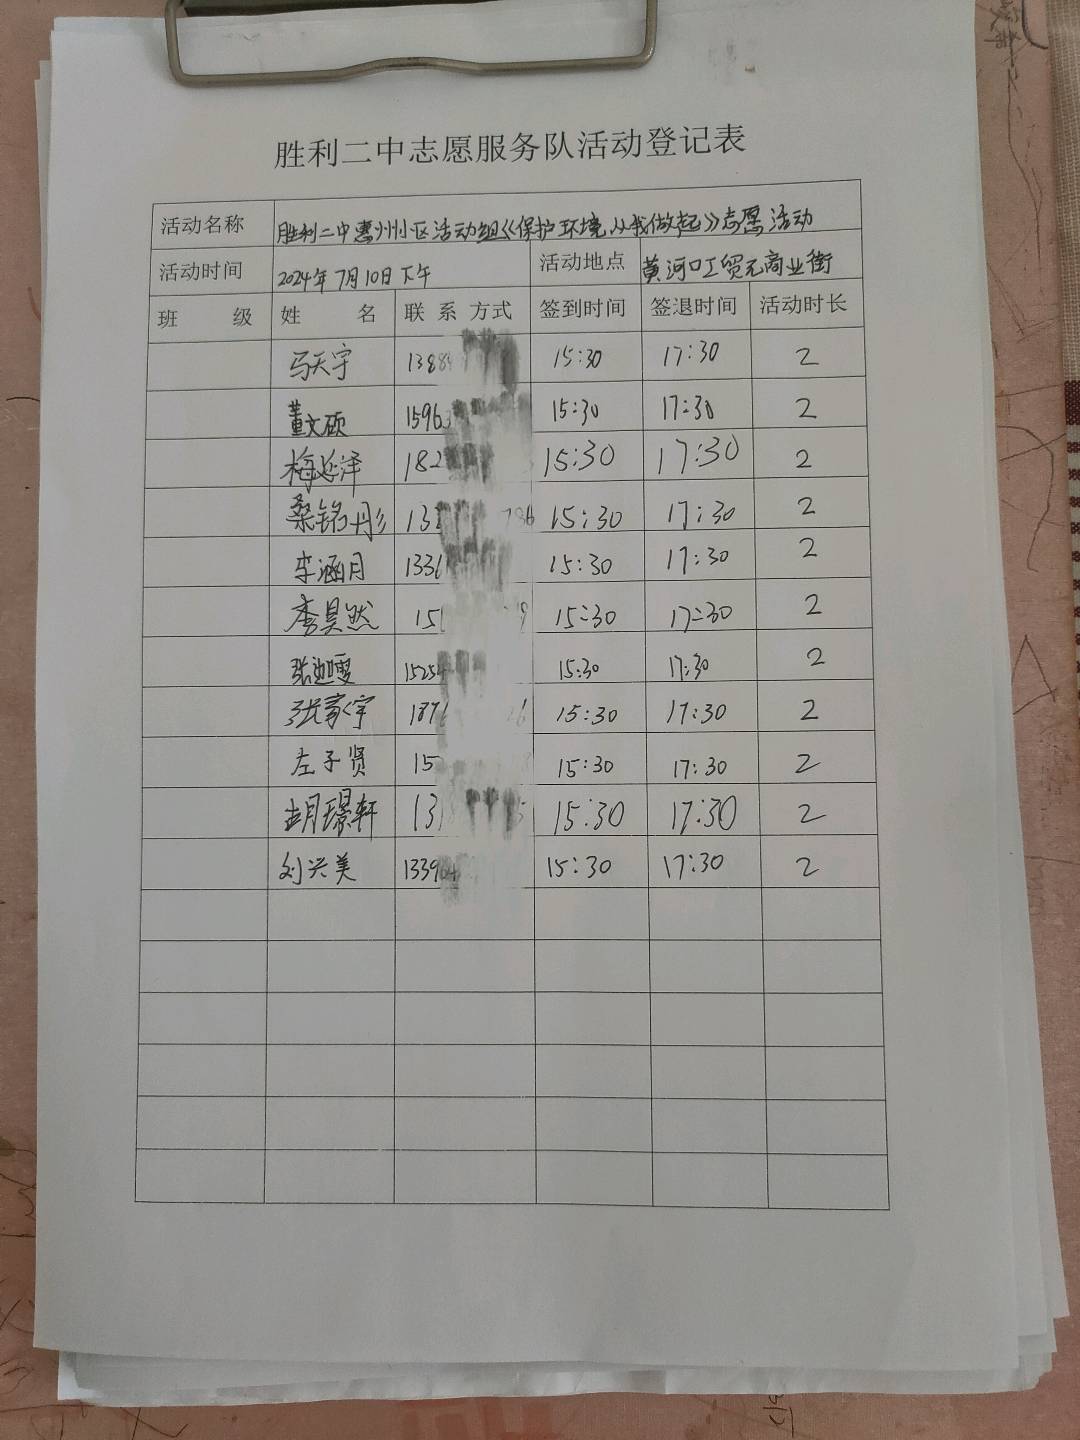 胜利二中志愿服务队活动登记表
活动名称 胜利二中惠州小区活动组《保护环境,从我做起》志愿活动
活动时间 2024年7月10日下午 活动地点 黄河口工贸元商业街
班 级 姓 名 联 系 方式 签到时间 签退时间 活动时长
马天宇 1388 15:30 17:30 2
董文硕 15963 15:30 17:30 2
梅延泽 182 15:30 17:30 2
桑铭彤 13 786 15:30 17:30 2
李涵月 1336 15:30 17:30 2
李昊然 15 15:30 17:30 2
张迦雯 15254 15:30 17:30 2
张家宇 1876 26 15:30 17:30 2
左子贤 15 15:30 17:30 2
胡璟轩 13 5 15:30 17:30 2
刘兴美 13396 15:30 17:30 2